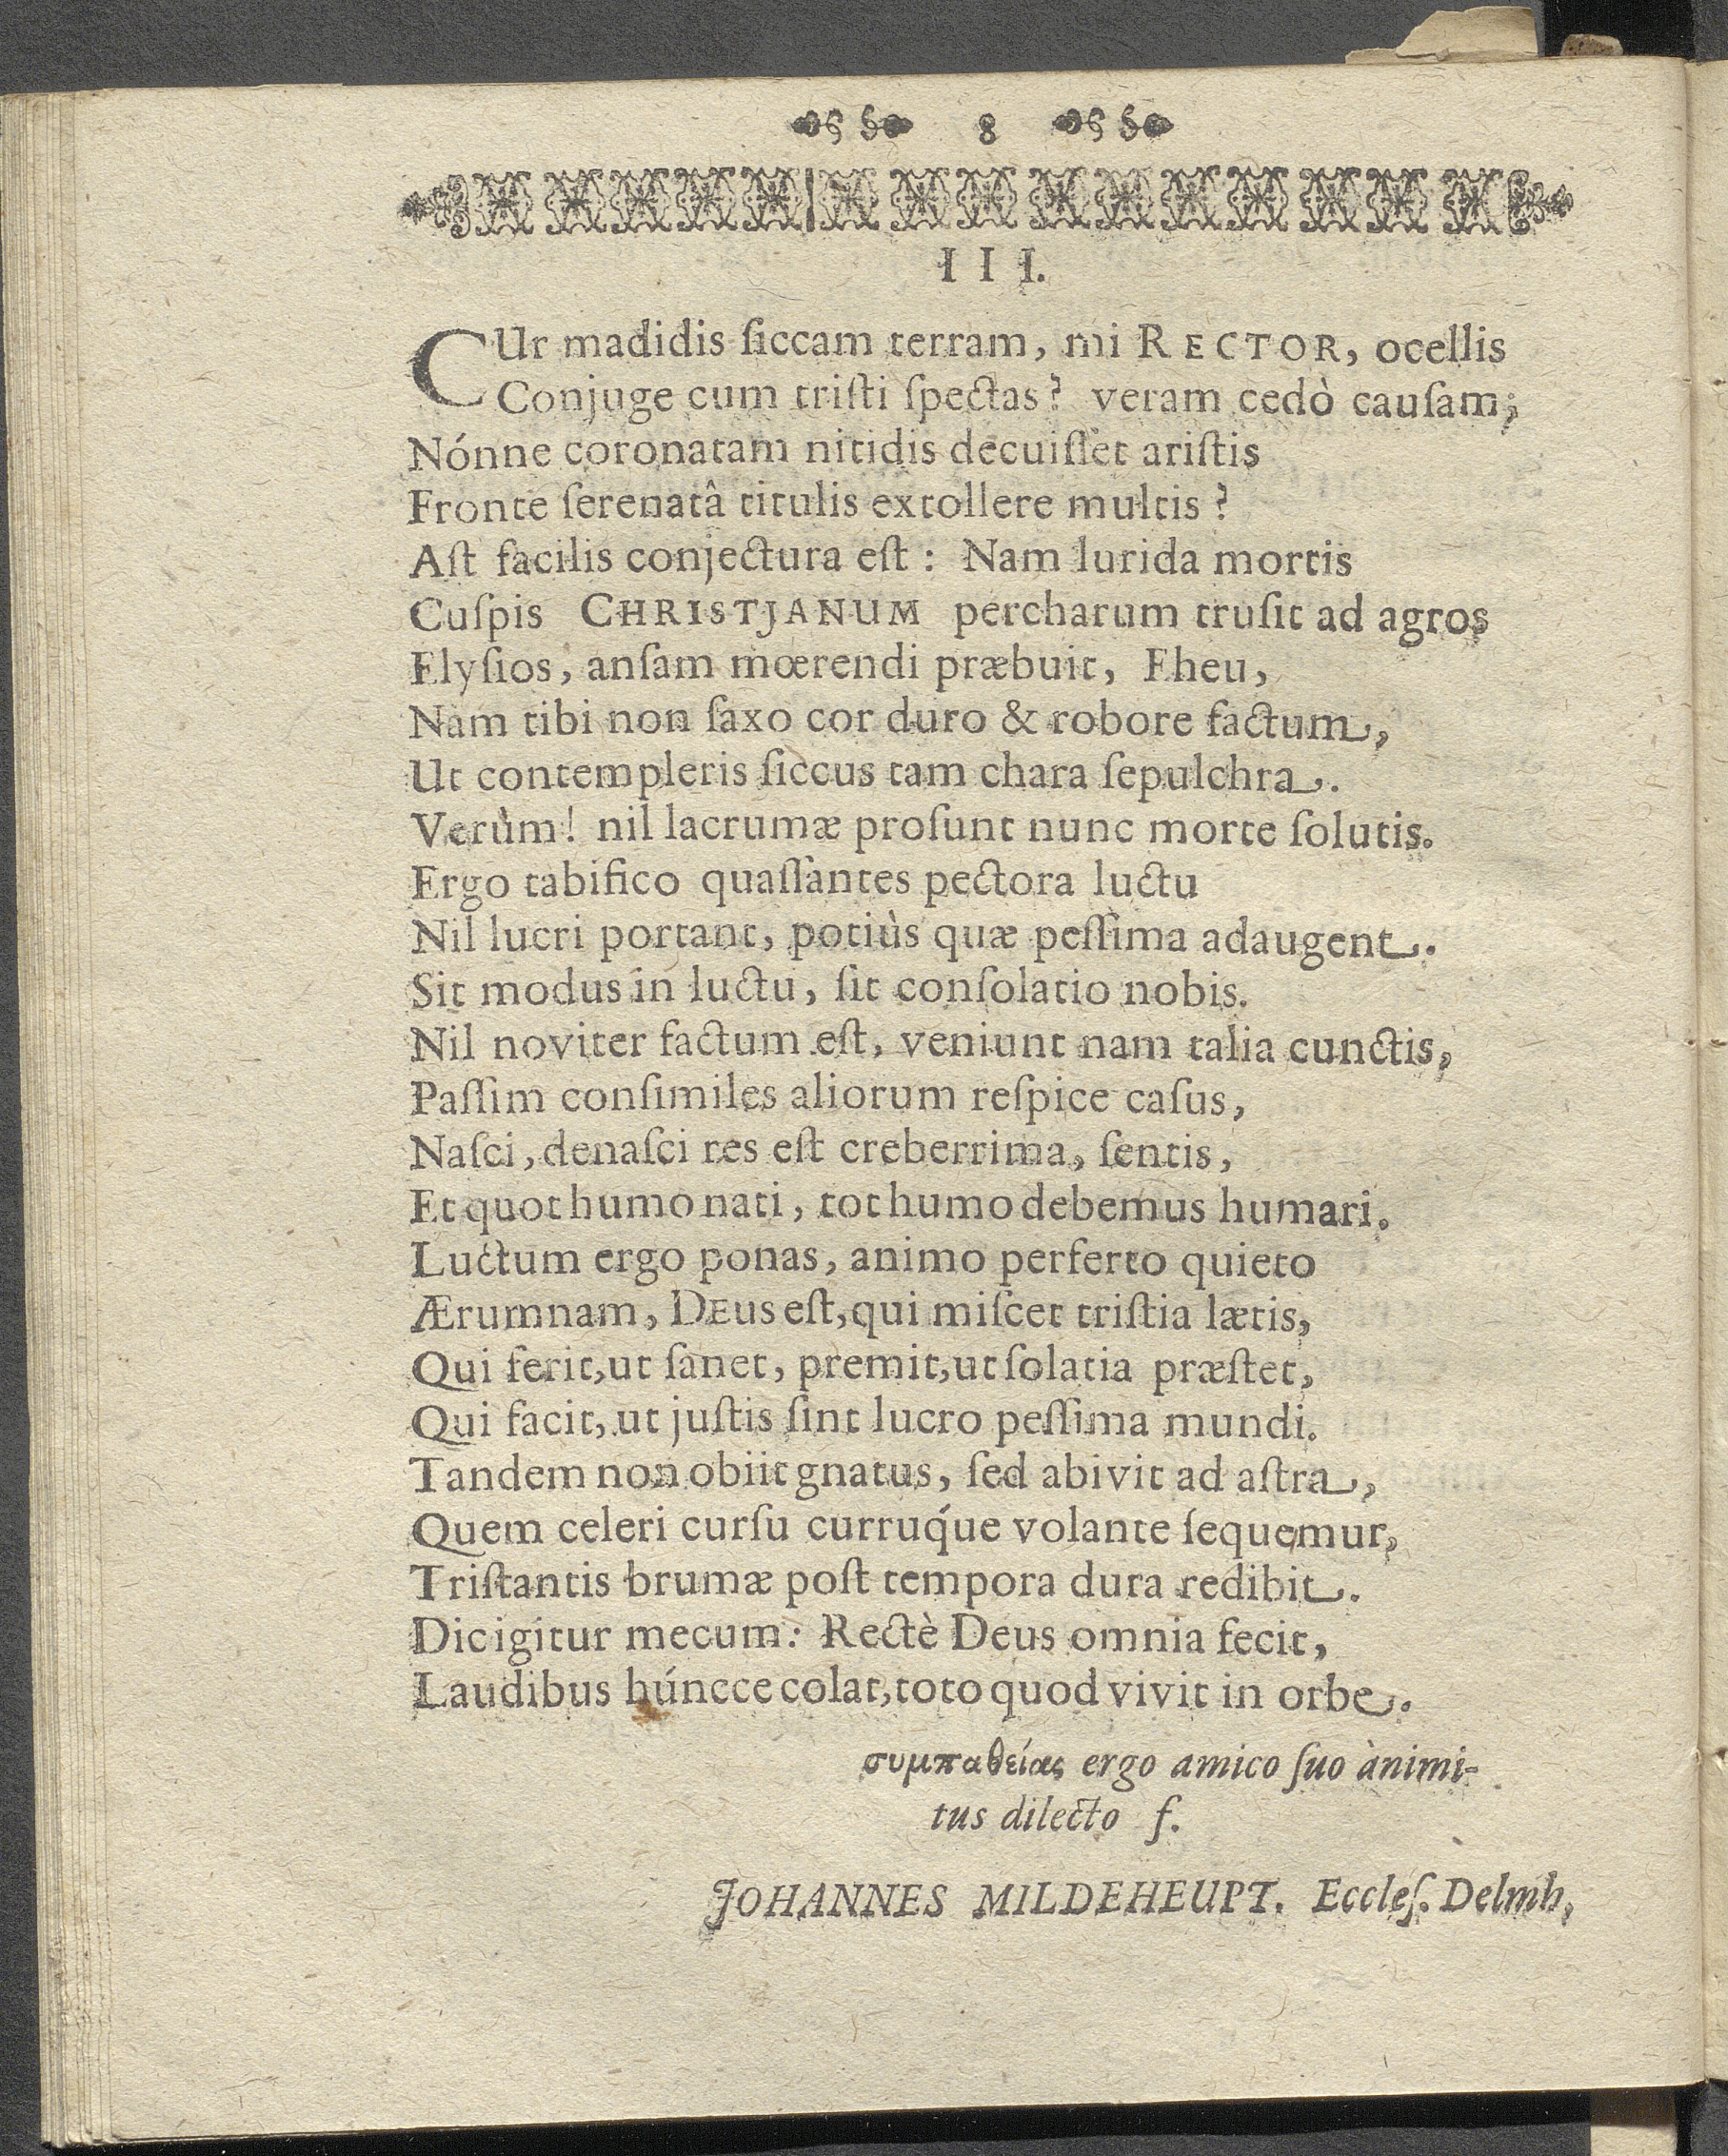 8
III.
CUr madidis ſiccam terram, mi RECTOR, ocellis
Conjuge cum triſti ſpectas? veram cedò cauſam;
Nónne coronatam nitidis decuiſſet ariſtis
Fronte ſerenatâ titulis extollere multis?
Aſt facilis conjectura eſt: Nam lurida mortis
Cuſpis CHRISTJANUM percharum truſit ad agros
Elyſios, anſam mœrendi præbuit, Eheu,
Nam tibi non ſaxo cor duro & robore factum,
Ut contempleris ſiccus tam chara ſepulchra.
Verùm! nil lacrumæ proſunt nunc morte ſolutis.
Ergo tabifico quaſſantes pectora luctu
Nil lucri portant, potiùs quæ peſſima adaugent.
Sit modus in luctu, ſit conſolatio nobis.
Nil noviter factum eſt, veniunt nam talia cunctis,
Paſſim conſimiles aliorum reſpice caſus,
Naſci, denaſci res eſt creberrima, ſentis,
Et quot humo nati, tot humo debemus humari.
Luctum ergo ponas, animo perferto quieto
Ærumnam, DEus eſt, qui miſcet triſtia lætis,
Qui ferit, ut ſanet, premit, ut ſolatia præſtet,
Qui facit, ut juſtis ſint lucro peſſima mundi.
Tandem non obiit gnatus, ſed abivit ad aſtra,
Quem celeri curſu curruq́ue volante ſequemur,
Triſtantis brumæ poſt tempora dura redibit.
Dic igitur mecum: Rectè Deus omnia fecit,
Laudibus húncce colat, toto quod vivit in orbe.
συμπαθείας ergo amico ſuo ànimi-
tus dilecto f.
JOHANNES MILDEHEUPT. Eccleſ. Delmh,